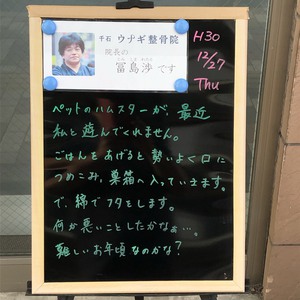 千石 ウナギ整骨院
院長の
冨島渉です
H30
12/27
Thu
ペットのハムスターが、最近
私と遊んでくれません。
ごはんをあげると勢いよく口に
つめこみ、巣箱へ入っていきます。
で、綿でフタをします。
何か悪いことしたかなぁ…。
難しいお年頃なのかな？